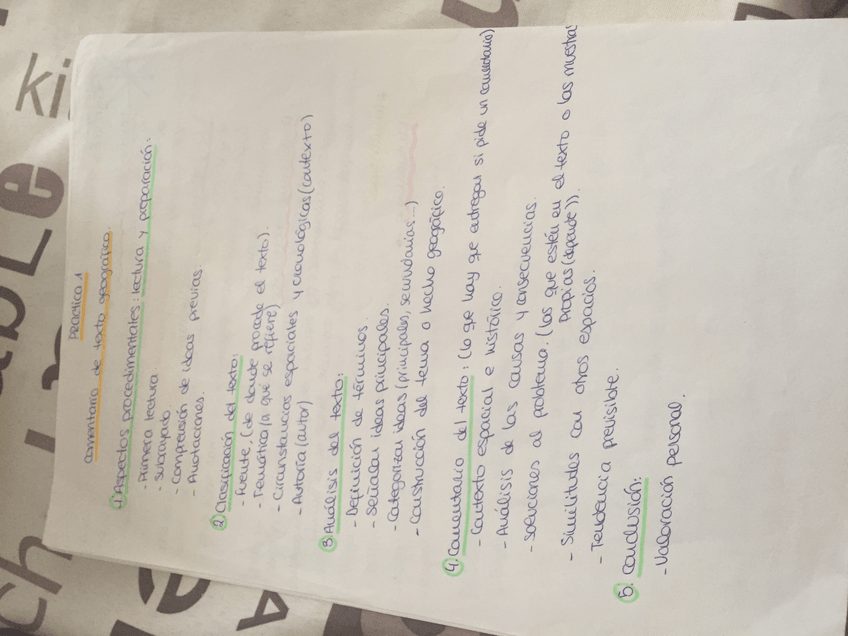 Práctica 1
Comentario de texto geográfico.
1. Aspectos procedimentales: lectura y preparación.
- Primera lectura.
- Subrayado.
- Comprensión de ideas previas.
- Anotaciones.
2 Clasificación del texto:
- Fuente. (de donde procede el texto).
- Temática (a qué se refiere)
- Circunstancias espaciales y cronológicas (contexto)
- Autoría (autor)
3 Análisis del texto:
- Definición de términos.
- Señalar ideas principales.
- Categorizar ideas (principales, secundarias...)
- Construcción del tema o hecho geográfico.
4. Comentario del texto: (lo qe hay qe entregar si pide un comentario)
- Contexto espacial e histórico.
- Análisis de las causas y consecuencias.
- Soluciones al problema. (las que estén en el texto o las nuestras
propias (depende)).
- Similitudes con otros espacios.
- Tendencia previsible.
5. Conclusión:
- Valoración personal.